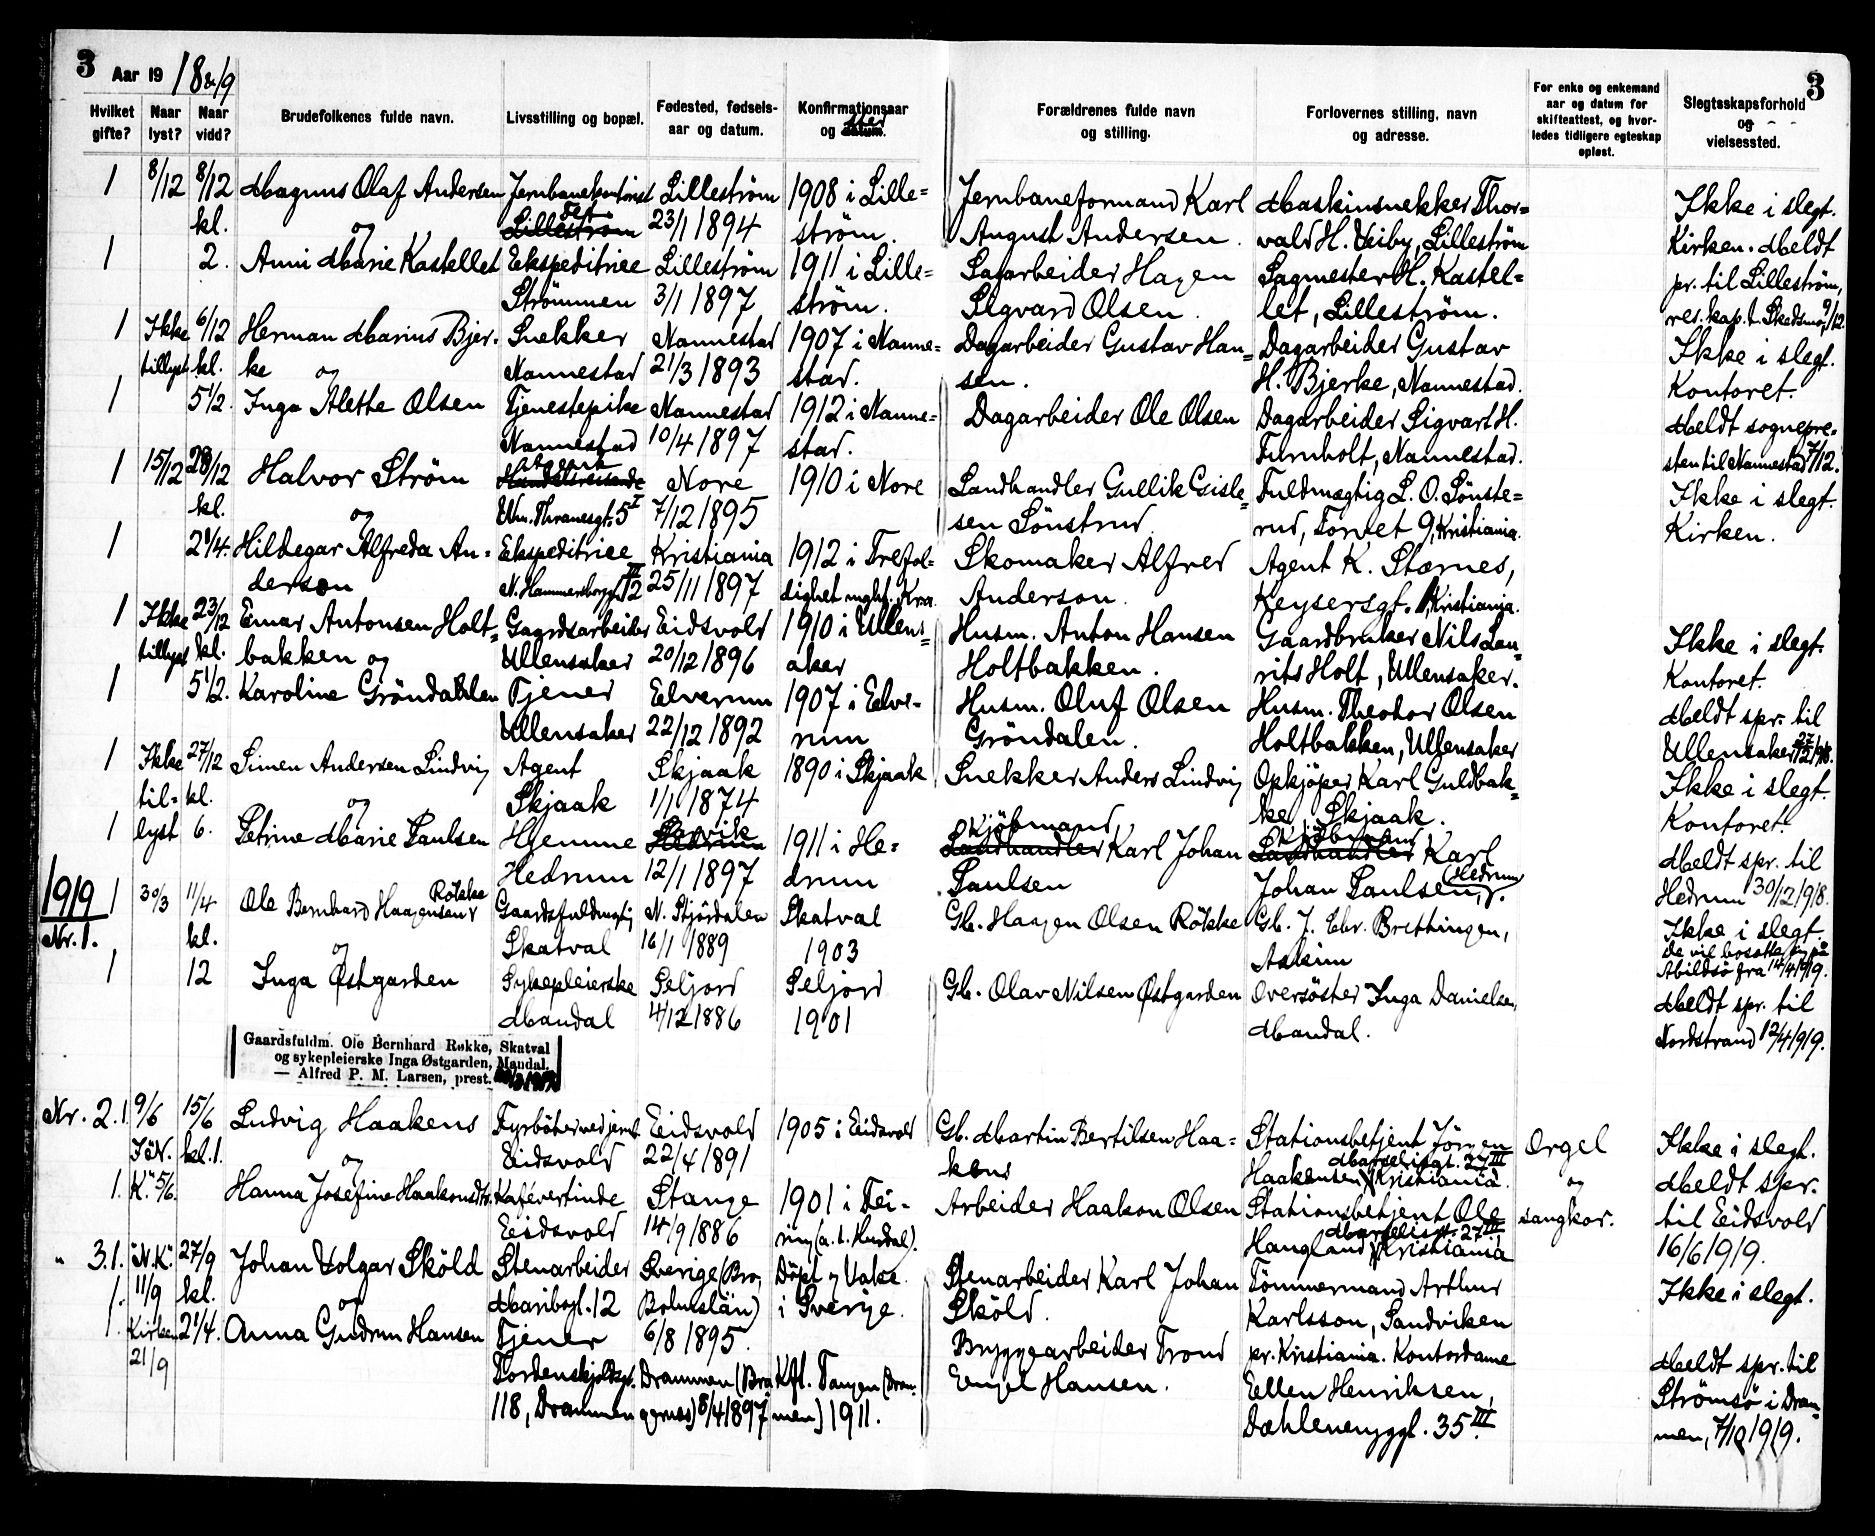 3 Aar 19 18 & 19 3
Hvilket gifte? Naar lyst? Naar vidd? Brudefolkenes fulde navn. Livsstilling og bopæl. Fødested, fødsels-aar og datum. Konfirmationsaar og datum. sted Forældrenes fulde navn og stilling. Forlovernes stilling, navn og adresse. For enke og enkemand aar og datum for skifteattest, og hvorledes tidligere egteskap opløst. Slegtsskapsforhold og vielsessted.
1 8/12 8/12 Magnus Olaf Andersen Jernbanekontorist Lilleström 1908 i Lille= Jernbaneformand Karl Maskinsnekker Thor= Ikke i slegt.
kl. og Fet Lilleström 23/1 1894 ström. August Andersen. vald H. Veiby, Lilleström Kirken. Meldt
1 2. Anni Marie Kastellet Ekspeditrice Lilleström 1911 i Lille= Sagarbeider Hagen Sagmester H. Kastel= pr. til Lilleström,
Strömmen 3/1 1897 ström. Sigvard Olsen. let, Lilleström. res. kap. t. Skedsmo 9/12.
1 Ikke 6/12 Herman Marius Bjer. Snekker Nannestad 1907 i Nanne= Dagarbeider Gustav Han= Dagarbeider Gustav Ikke i slegt.
tillyst kl. ke og Nannestad 21/3 1893 stad. sen. H. Bjerke, Nannestad. Kontoret.
1 5 1/2. Inga Alette Olsen Tjenestepike Nannestad 1912 i Nanne= Dagarbeider Ole Olsen Dagarbeider Sigvart H. Meldt sognepre=
Nannestad 10/4 1897 stad. Furuholt, Nannestad. sten til Nannestad 7/12.
1 15/12 28/12 Halvor Ström Agent Handelsreisende Nore 1910 i Nore Landhandler Gullik Gisle= Fuldmægtig L. O. Sönste= Ikke i slegt.
kl. og Wm. Thranesgt. 5 I 7/12 1895 sen Sönstrud. rud, Torvet 9, Kristiania. Kirken.
1 2 1/4. Hildegar Alfreda An- Ekspeditrice Kristiania 1912 i Trefol= Skomaker Alfred Agent K. Stærnes,
derson N. Hammersborggt. 12 III 25/11 1897 dighet mght., Kra Anderson. Keysersgt. 1, Kristiania.
1 Ikke 23/12 Einar Antonsen Holt= Gaardsarbeider Eidsvold 1910 i Ullens= Husm. Anton Hansen Gaardbruker Nils Lau= Ikke i slegt.
tillyst kl. bakken og Ullensaker 20/12 1896 aker Holtbakken. rits Holt, Ullensaker. Kontoret.
1 5 1/2. Karoline Gröndahlen Tjener Elverum 1907 i Elve- Husm. Oluf Olsen Husm. Theodor Olsen Meldt spr. til
Ullensaker 22/12 1892 rum Gröndalen. Holtbakken, Ullensaker Ullensaker 27/12 1918.
1 Ikke 27/12 Simen Andersen Lindvig Agent Skjaak 1890 i Skjaak Snekker Anders Lindvig Opkjöper Karl Guldbak= Ikke i slegt.
til= kl. og Skjaak 1/1 1874 ke, Skjaak. Kontoret.
1 lyst 6. Petrine Marie Paulsen Hjemme Larvik Hedrum 1911 i He- Kjöbmand Landhandler Karl Johan Kjöbmand Landhandler Karl Meldt spr. til
Hedrum 12/1 1897 drum Paulsen Johan Paulsen, Hedrum. Hedrum 30/12 1918.
1919 1 30/3 11/4 Ole Bernhard Haagensen Rökke Gaardsfuldmegtig N. Stjördalen Skatval Gb. Haagen Olsen Rökke Gb. J. Chr. Brettingen, Ikke i slegt.
Nr. 1. kl. og Skatval 16/1 1889 1903 Askim De vil bosætte sig på Abildsö fra 14/4 1919.
1 12 Inga Østgarden Sykepleierske Seljord Seljord Gb. Olav Nilsen Østgarden Oversöster Inga Danielsen, Meldt spr. til
Mandal 4/12 1886 1901 Mandal. Nordstrand 12/4 1919.
Gaardsfuldm. Ole Bernhard Røkke, Skatval
og sykepleierske Inga Østgarden, Mandal.
— Alfred P. M. Larsen, prest.
Nr. 2. 1. 9/6 15/6 Ludvig Haakens Fyrböter ved jernb. Eidsvold 1905 i Eidsvold Gb. Martin Bertilsen Haa= Stationsbetjent Jörgen Orgel Ikke i slegt.
F.o.N. kl. 1. og Eidsvold 22/4 1891 kens Haakensen, Marselisgt. 27 III Kristiania. og Meldt spr.
1. K." 5/6. Hanna Josefine Haakonsdtr. Kafévertinde Stange 1901 i Fei- Arbeider Haakon Olsen Stationsbetjent Ole sangkor. til Eidsvold
Eidsvold 14/9 1886 ring (a. t. Hurdal). Haugland, Marselisgt. 27 III Kristiania 16/6 1919.
" 3. 1. "N.K." 27/9 Johan Volgar Sköld Stenarbeider Sverige (Bro, Döpt y Vake. Stenarbeider Karl Johan Tömmermand Arthur Ikke i slegt.
1. 11/9 kl. og Maribogt. 12 Bohuslän) i Sverige. Sköld. Karlsson, Sandviken
1. Kirken 2 1/4. Anna Gudrun Hansen Tjener 6/8 1895. Bryggearbeider Trond pr. Kristiania. Kontordame Meldt spr. til
21/9 Tordenskjoldsgt. Drammen (Bra Kft. Tangen (Dram- Engel Hansen. Ellen Henriksen, Strömsö i Dram-
118, Drammen gernes) 8/4 1897 men) 1911. Dæhleneryggt. 35 III. men, 7/10 1919.